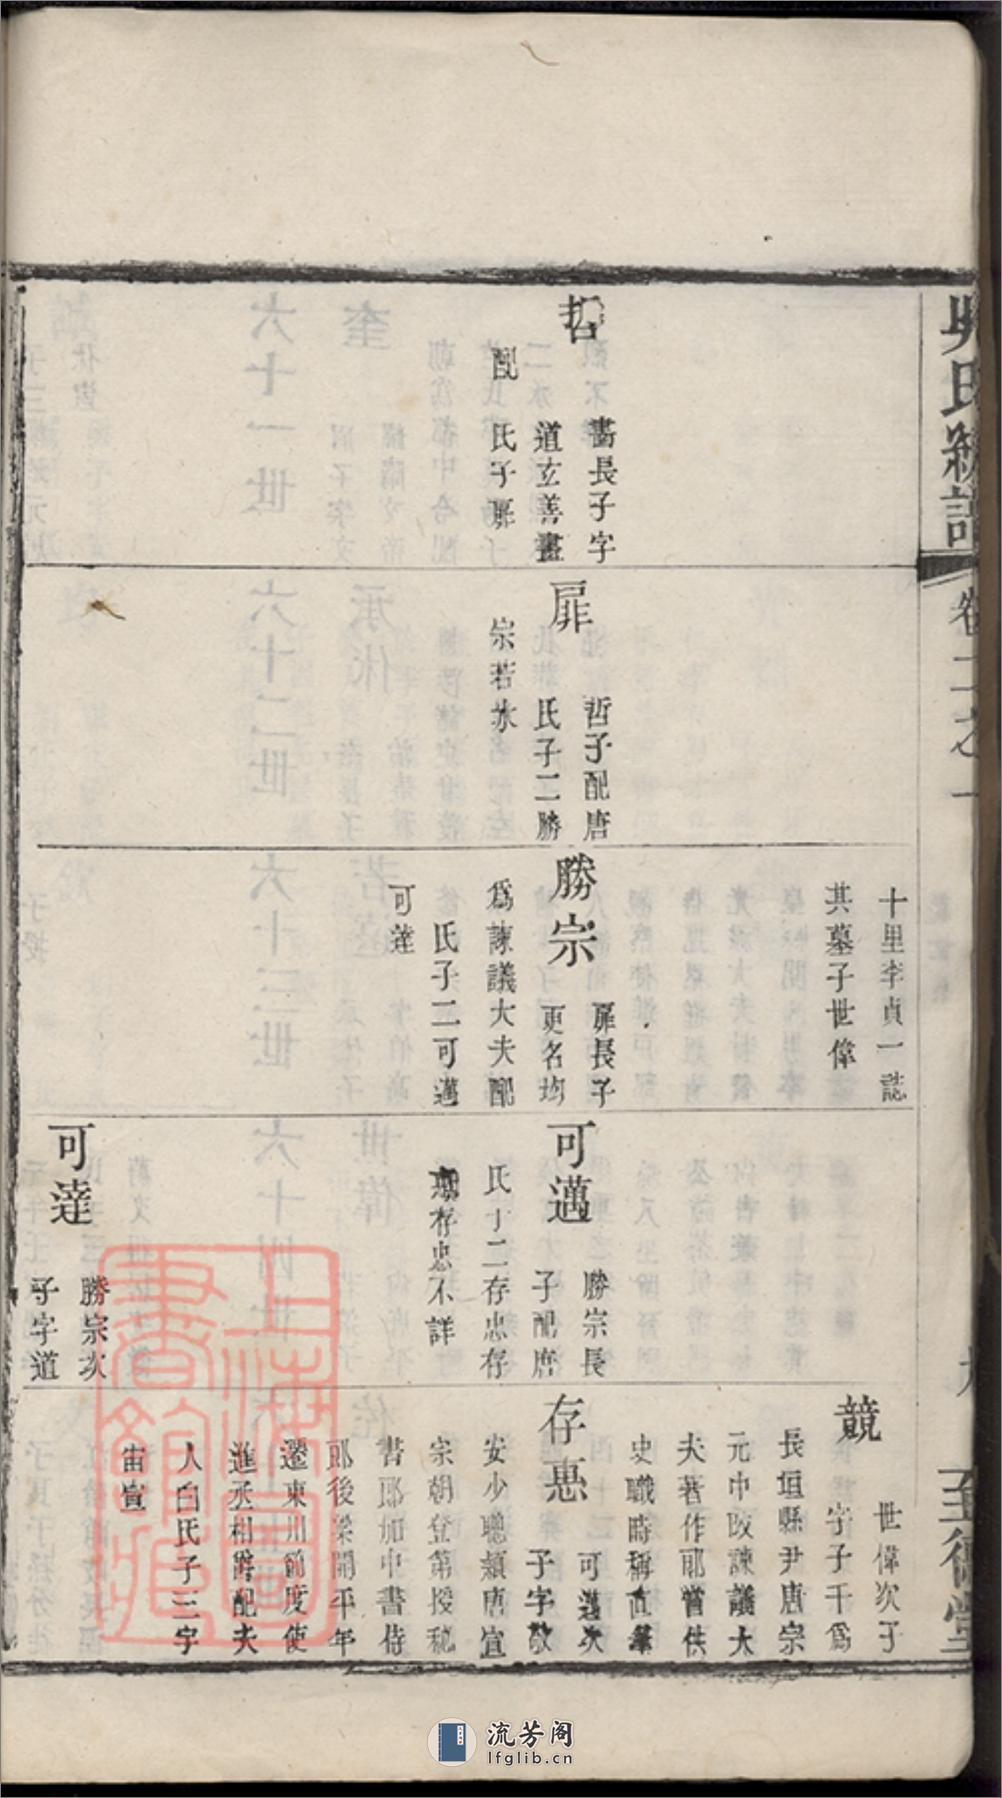 吳氏統譜
卷二之一
至德堂
哲
書長子字
道玄善畫
配 氏子犀
犀
哲子配唐
氏子二勝
宗若水
十里李貞一誌
其墓子世偉
勝宗
犀長子
更名均
爲諫議大夫配
氏子二可邁
可達
可邁
勝宗長
子配唐
氏子二存忠存
惠存忠不詳
可達
勝宗次
子字道
競
世偉次子
字子千爲
長垣縣尹唐宗
元中改諫議大
夫著作郎嘗供
史職時稱直筆
存惠
可邁次
子字敬
安少聰穎唐宣
宗朝登第授秘
書郎加中書侍
郎後梁開平年
遷東川節度使
進丞相爵配夫
人白氏子三字
宙宣
上海圖書館藏
流芳阁
lfglib.cn